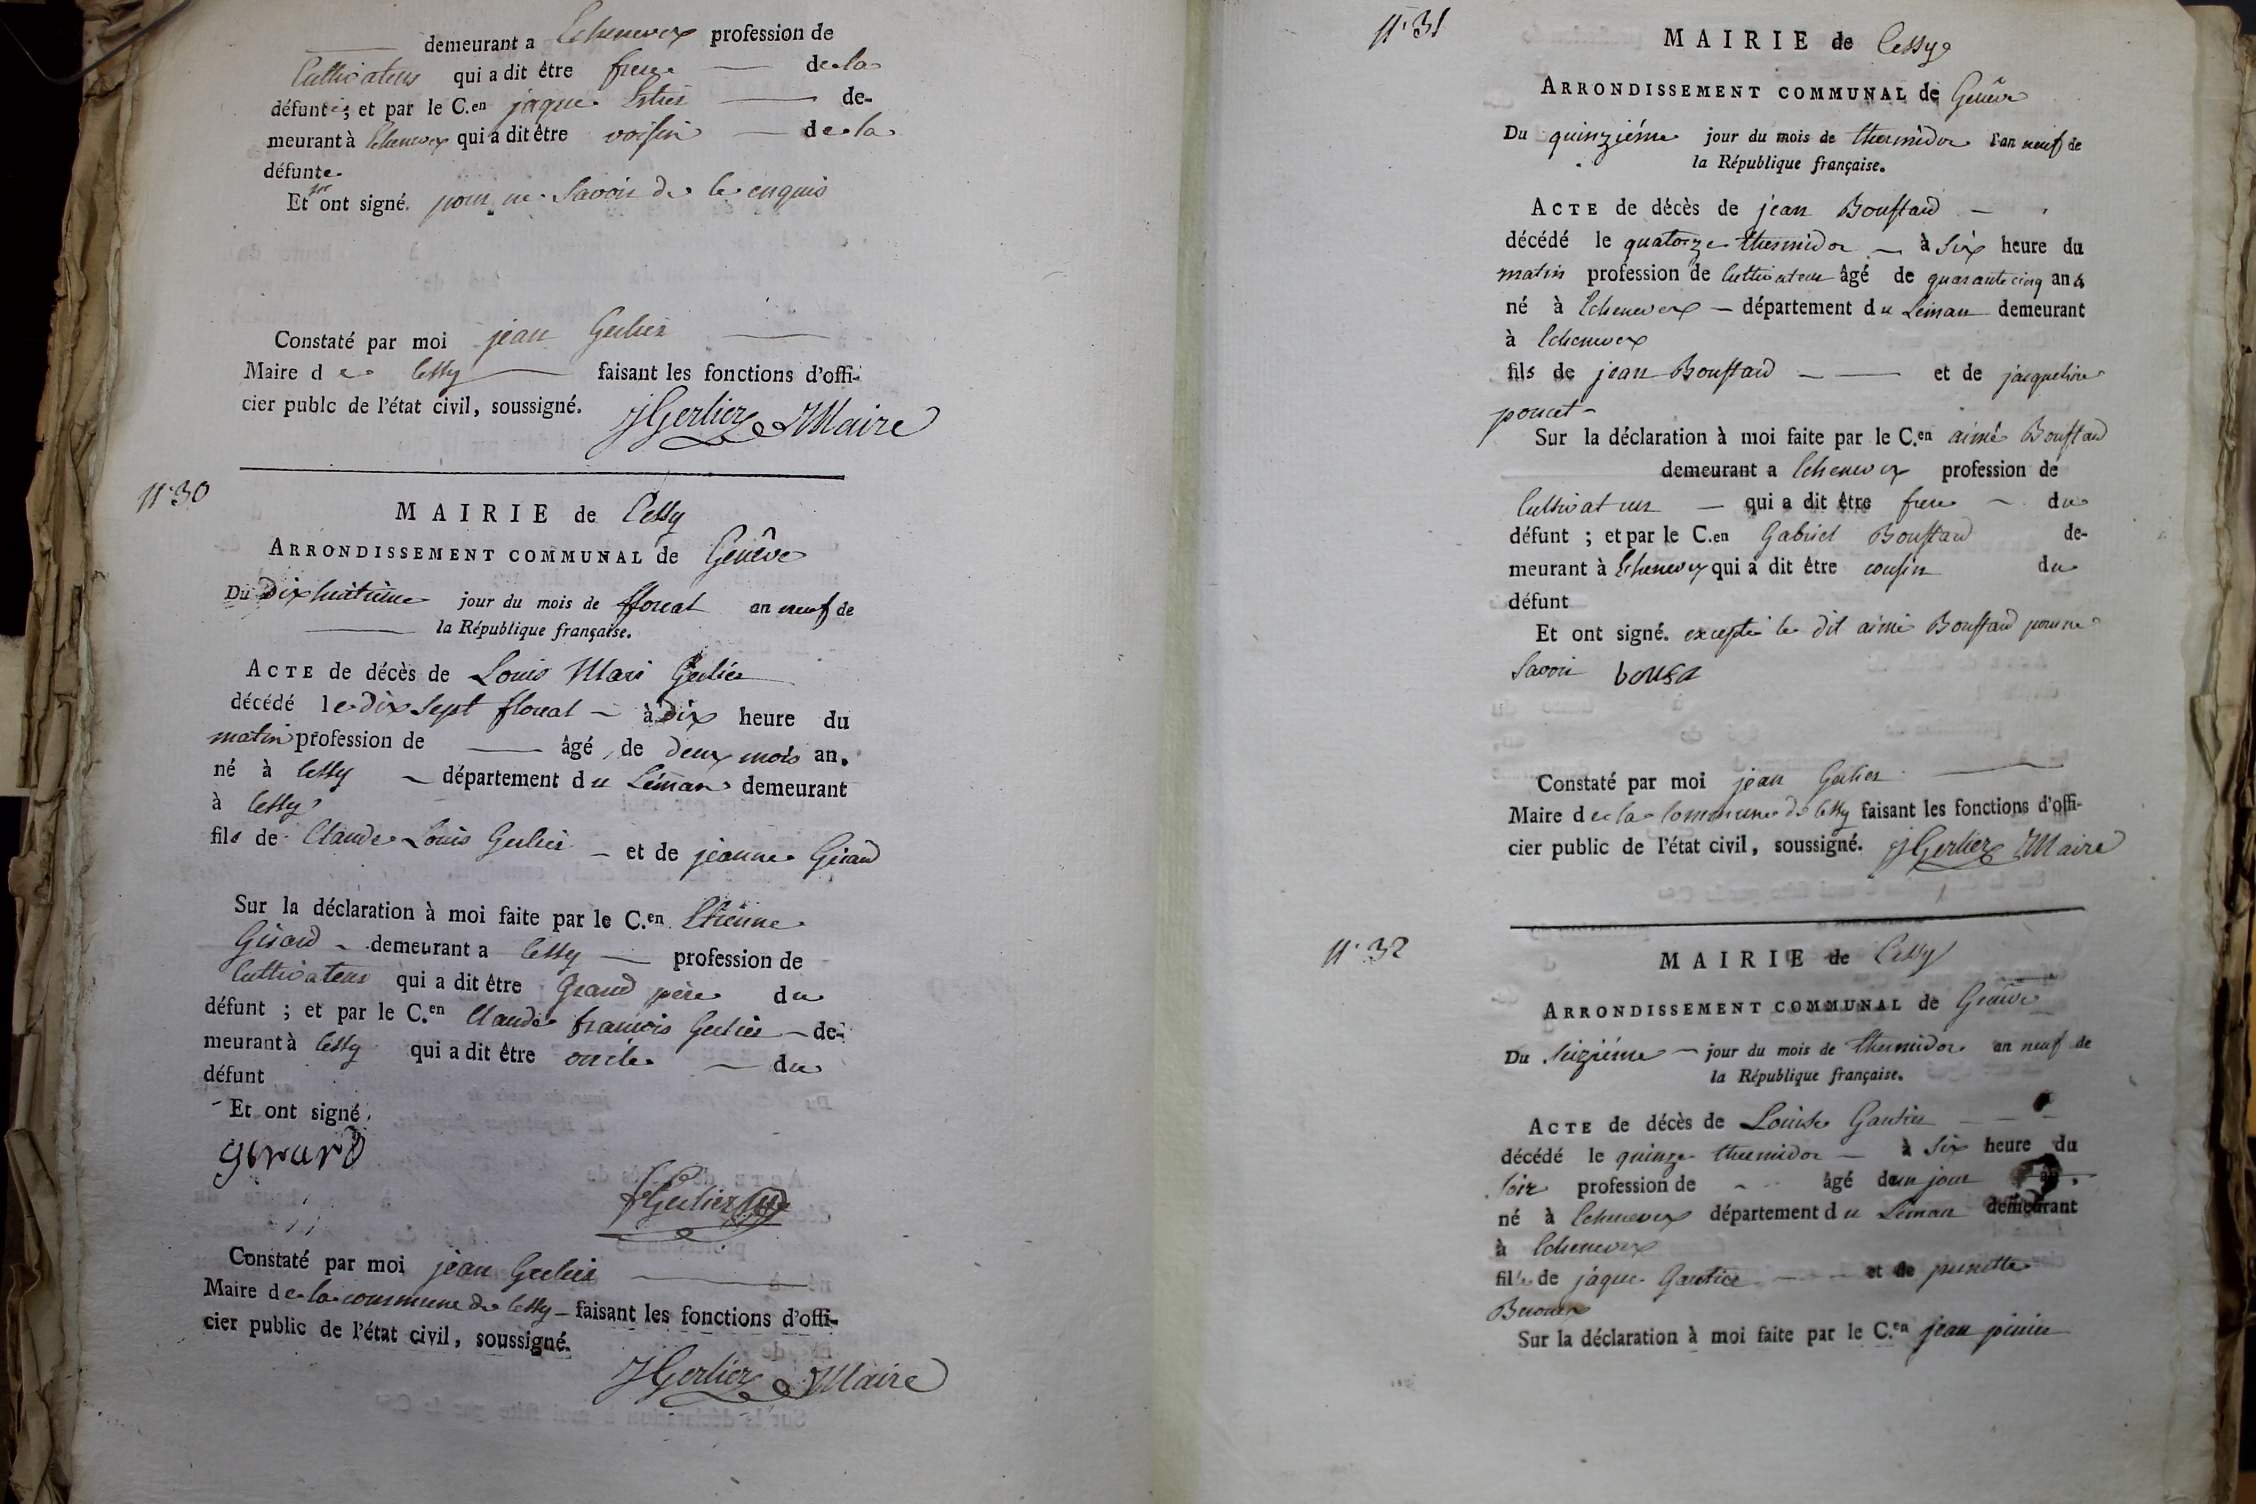 demeurant a Echenevex profession de
Cultivateur qui a dit être frere de la
défunte; et par le C.en jaque de-
meurant à Echenevex qui a dit être voisin de la
défunte.
Et ont signé. pour ne Savoir de ce enquis
Constaté par moi jean Gerlier
Maire de Cessy faisant les fonctions d'offi-
cier publc de l'état civil, soussigné. JGerlier Maire
N.30
MAIRIE de Cessy
ARRONDISSEMENT COMMUNAL de Genêve
Du Dixhuitieme jour du mois de floreal an neuf de
la République française.
ACTE de décès de Louis Mari Gerlier
décédé le Dix Sept floreal à Dix heure du
matin profession de âgé de deux mois an.
né à Cessy département du Léman demeurant
à Cessy
fils de Claude Louis Gerlier et de jeanne Girard
Sur la déclaration à moi faite par le C.en Etienne
Girard demeurant a Cessy profession de
Cultivateur qui a dit être Grand père du
défunt ; et par le C.en Claude francois Gerlier de-
meurant à Cessy qui a dit être oncle du
défunt
Et ont signé.
girard
Gerlier
Constaté par moi jean Gerlier
Maire de la commune de Cessy faisant les fonctions d'offi-
cier public de l'état civil, soussigné.
JGerlier Maire
N.31
MAIRIE de Cessy
ARRONDISSEMENT COMMUNAL de Genêve
Du quinziéme jour du mois de thermidor l'an neuf de
la République française.
ACTE de décès de jean Boussard
décédé le quatorze thermidor à Six heure du
matin profession de Cultivateur âgé de quarante cinq ans
né à Echenevex département du Léman demeurant
à Echenevex
fils de jean Boussard et de jacqueline
poncet
Sur la déclaration à moi faite par le C.en aimé Boussard
demeurant a Echenevex profession de
Cultivateur qui a dit être frere du
défunt ; et par le C.en Gabriel Boussard de-
meurant à Echenevex qui a dit être cousin du
défunt
Et ont signé. excepté le dit aimé Boussard pour ne
Savoir bousa
Constaté par moi jean Gerlier
Maire de la Commune de Cessy faisant les fonctions d'offi-
cier public de l'état civil, soussigné. JGerlier Maire
N.32
MAIRIE de Cessy
ARRONDISSEMENT COMMUNAL de Genêve
Du Seiziéme jour du mois de thermidor an neuf de
la République française.
ACTE de décès de Louise Gautier
décédé le quinze thermidor à Six heure du
Soir profession de âgé d'un jour an.
né à Echenevex département du Léman demeurant
à Echenevex
fille de jaque Gautier et de pernette
Sur la déclaration à moi faite par le C.en jean